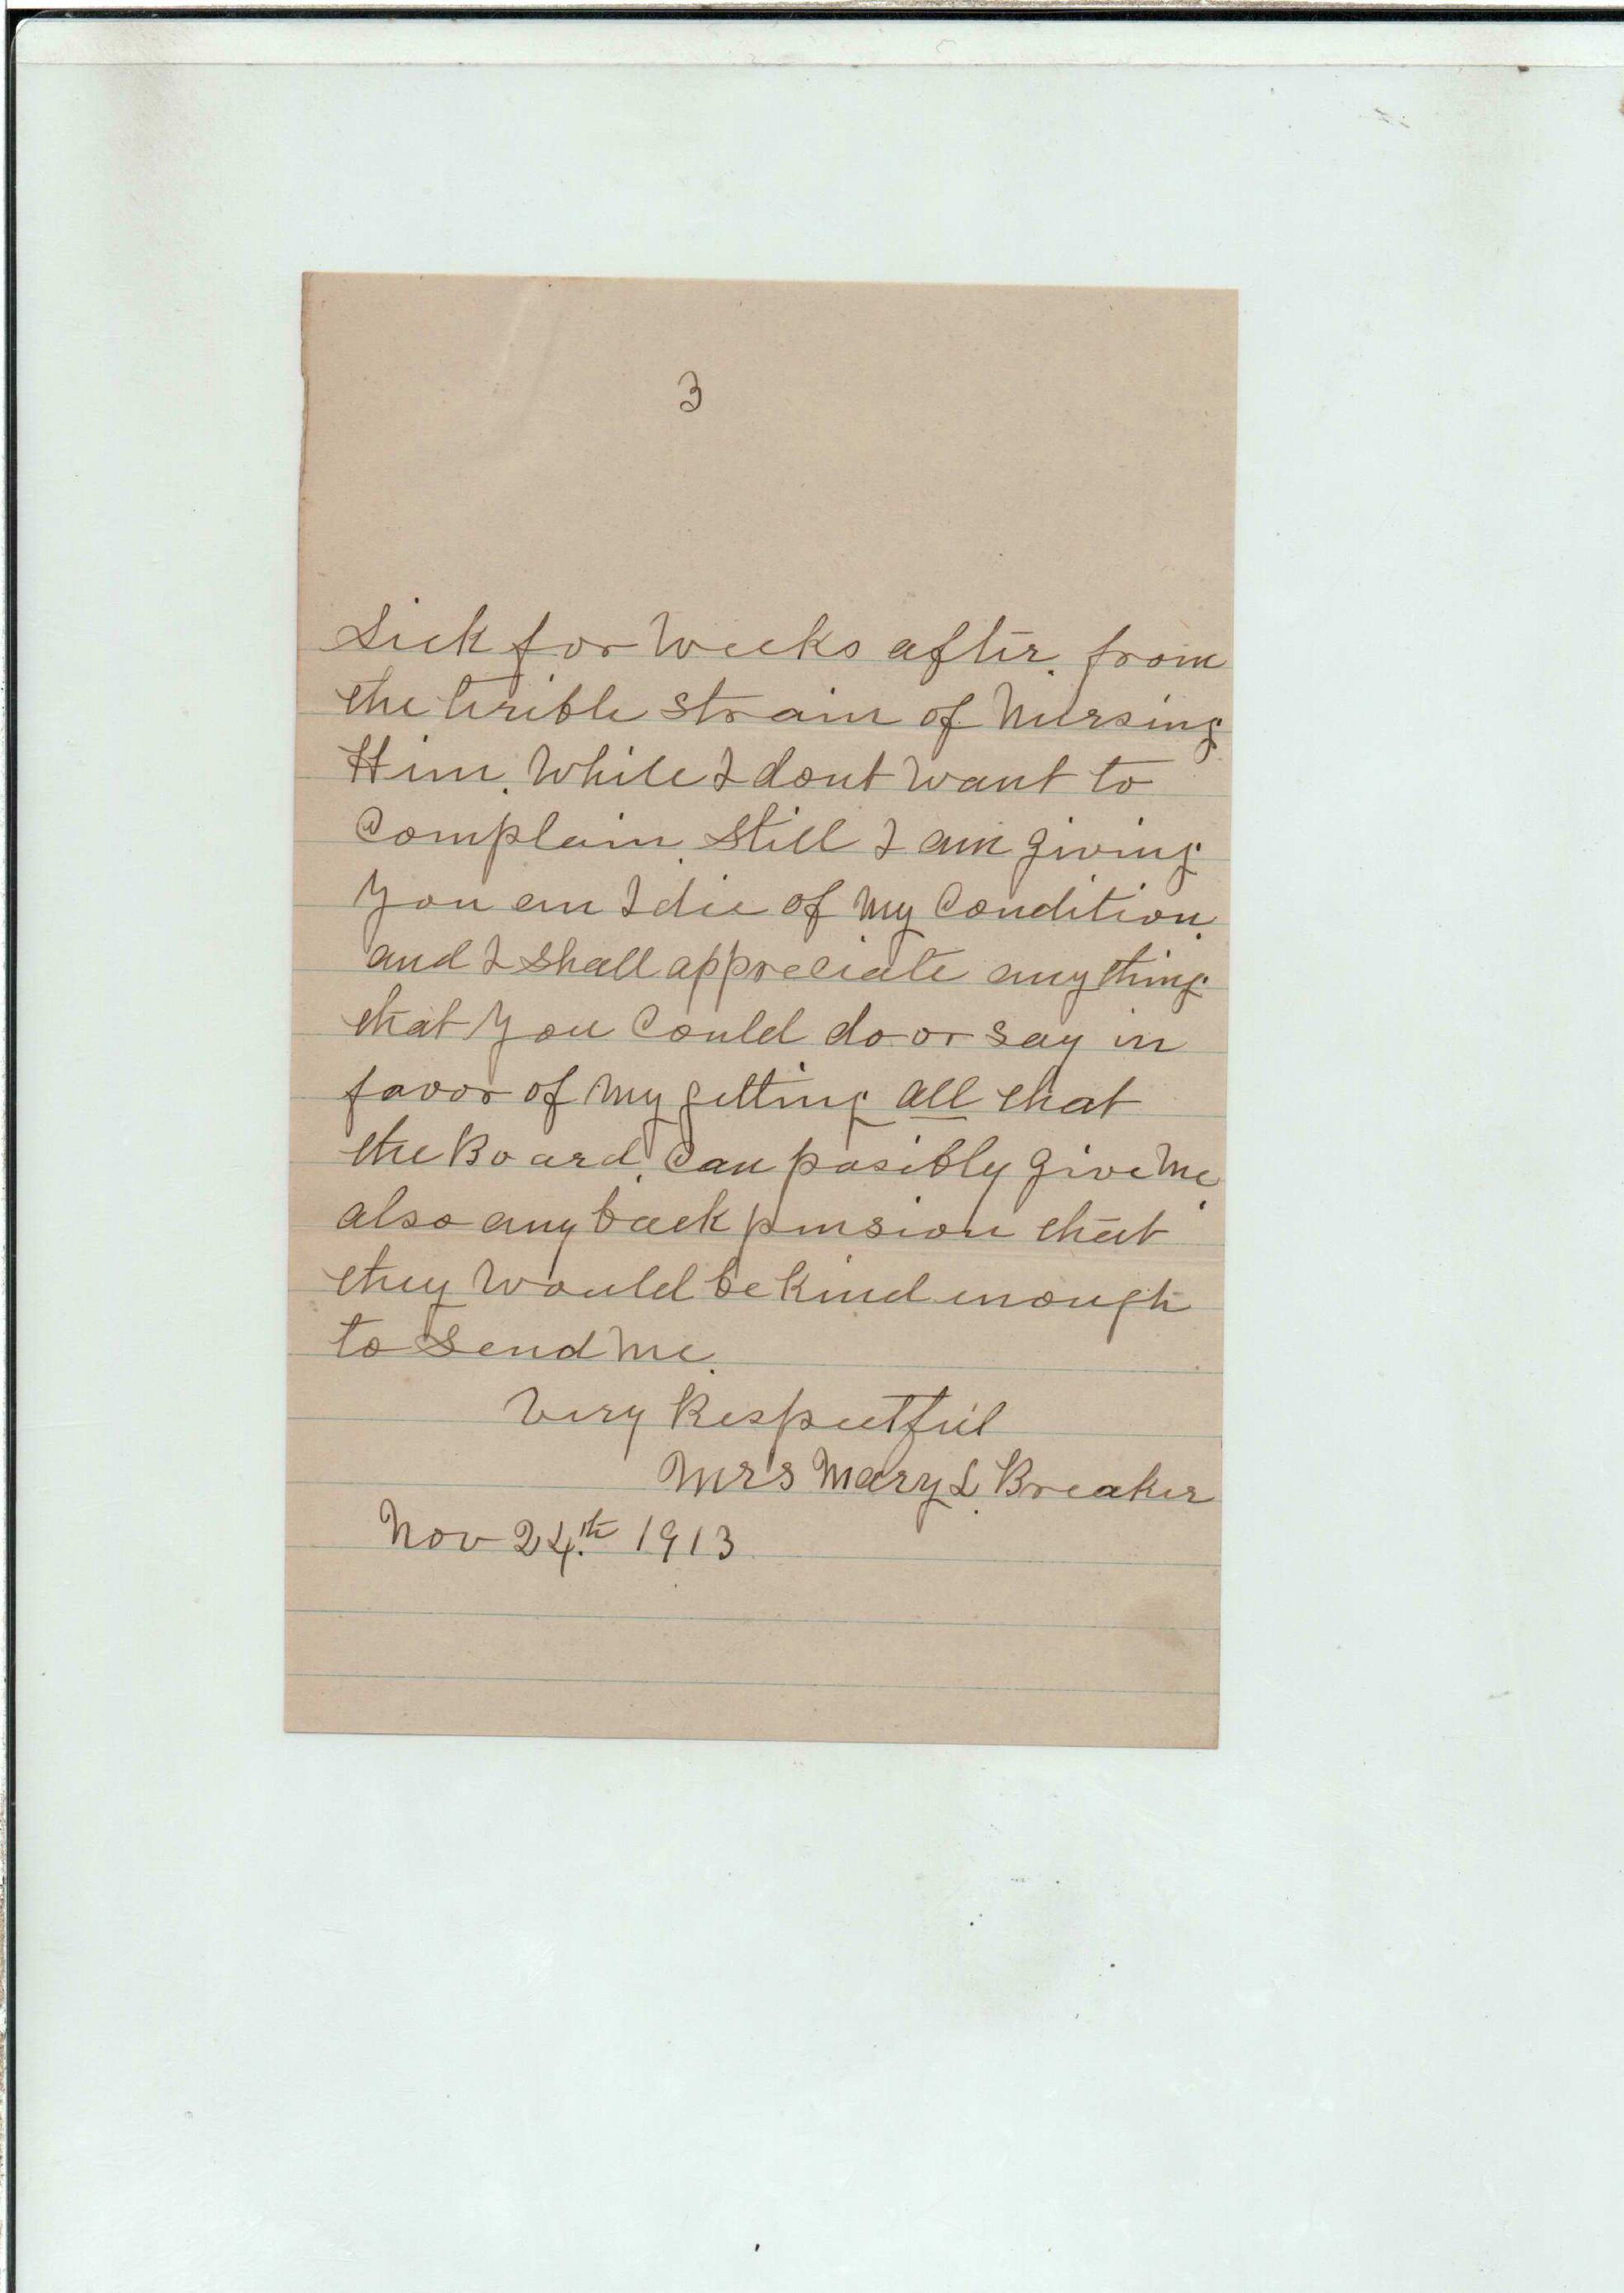 3
Sick for Weeks after. from
the terible strain of Nursing
Him. While I dont Want to
Complain. Still I am giving
You an Idie of My Condition.
and I shall appreciate any thing
that You Could do or say in
favor of My getting all that
the Board. Can posibly give Me.
also any back pension that
they Would be Kind enough
to send Me.
Very Respectful
Mrs Mary L. Breaker
Nov 24.th 1913